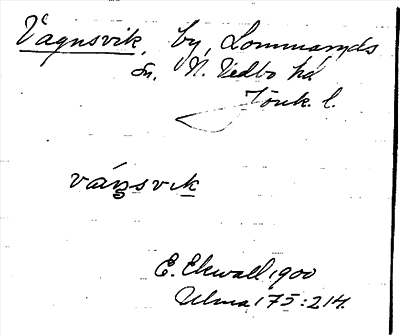 Vagnsvik, by, Lommaryds
sn. N. Vedbo hd
Jönk. l.
váŋsvik
E. Ekwall 1900
Ulma 175:214.